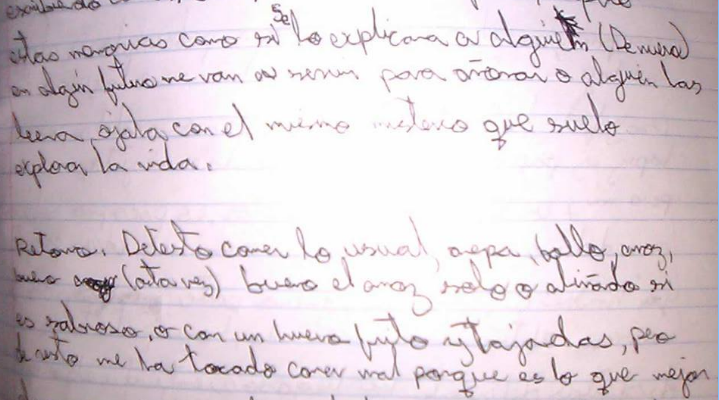 escribiendo
estas marquicas como si se lo explicara a alguien (De nuevo)
en algún futuro me van a servir para añorar o alguien las
leera ojala con el mismo misterio que suelo
explorar la vida.
Retomo. Detesto comer lo usual, arepa, bollo, arroz,
bueno (otra vez) bueno el arroz solo o aliñado si
es sabroso, o con un huevo frito y tajadas, pero
de resto me ha tocado comer mal porque es lo que mejor